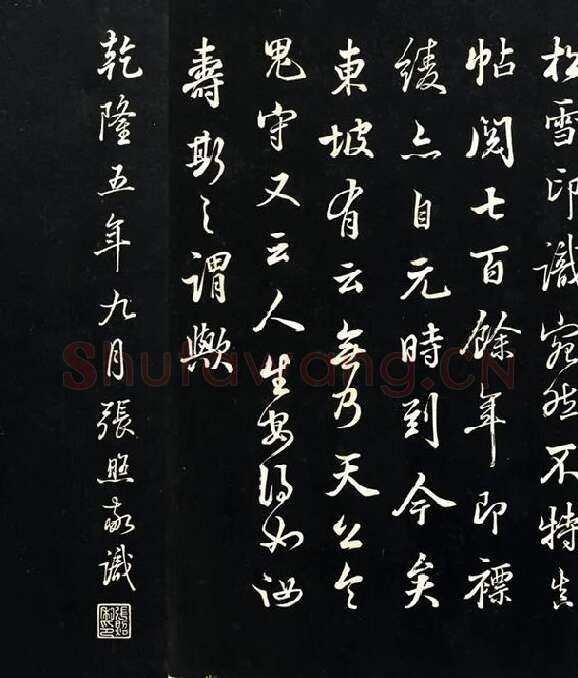 松雪印識宛然不特真
帖閱七百餘年即褾
綾亦自元時到今矣
東坡有云無乃天公令
鬼守又云人生安得如汝
壽斯之謂歟
乾隆五年九月張照敬識
Shufawang.CN